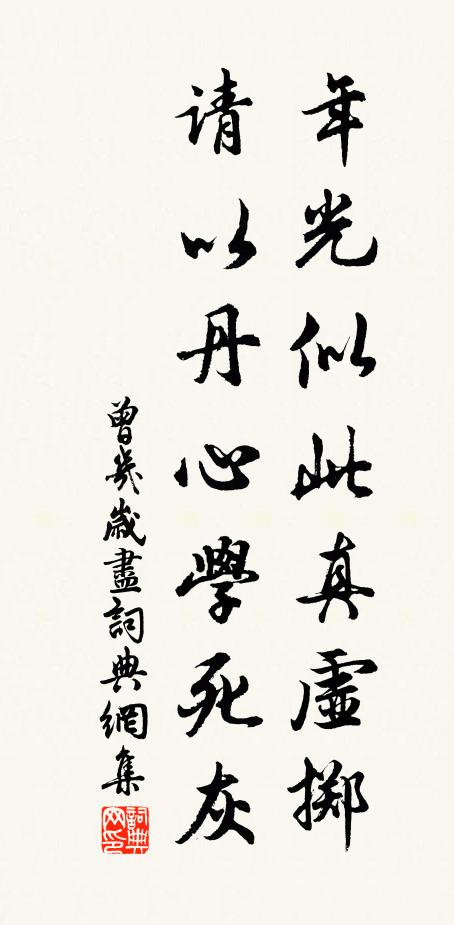 年光似此真虚掷
请以丹心學死灰
曾幾歲盡詞典網集
詞典网印